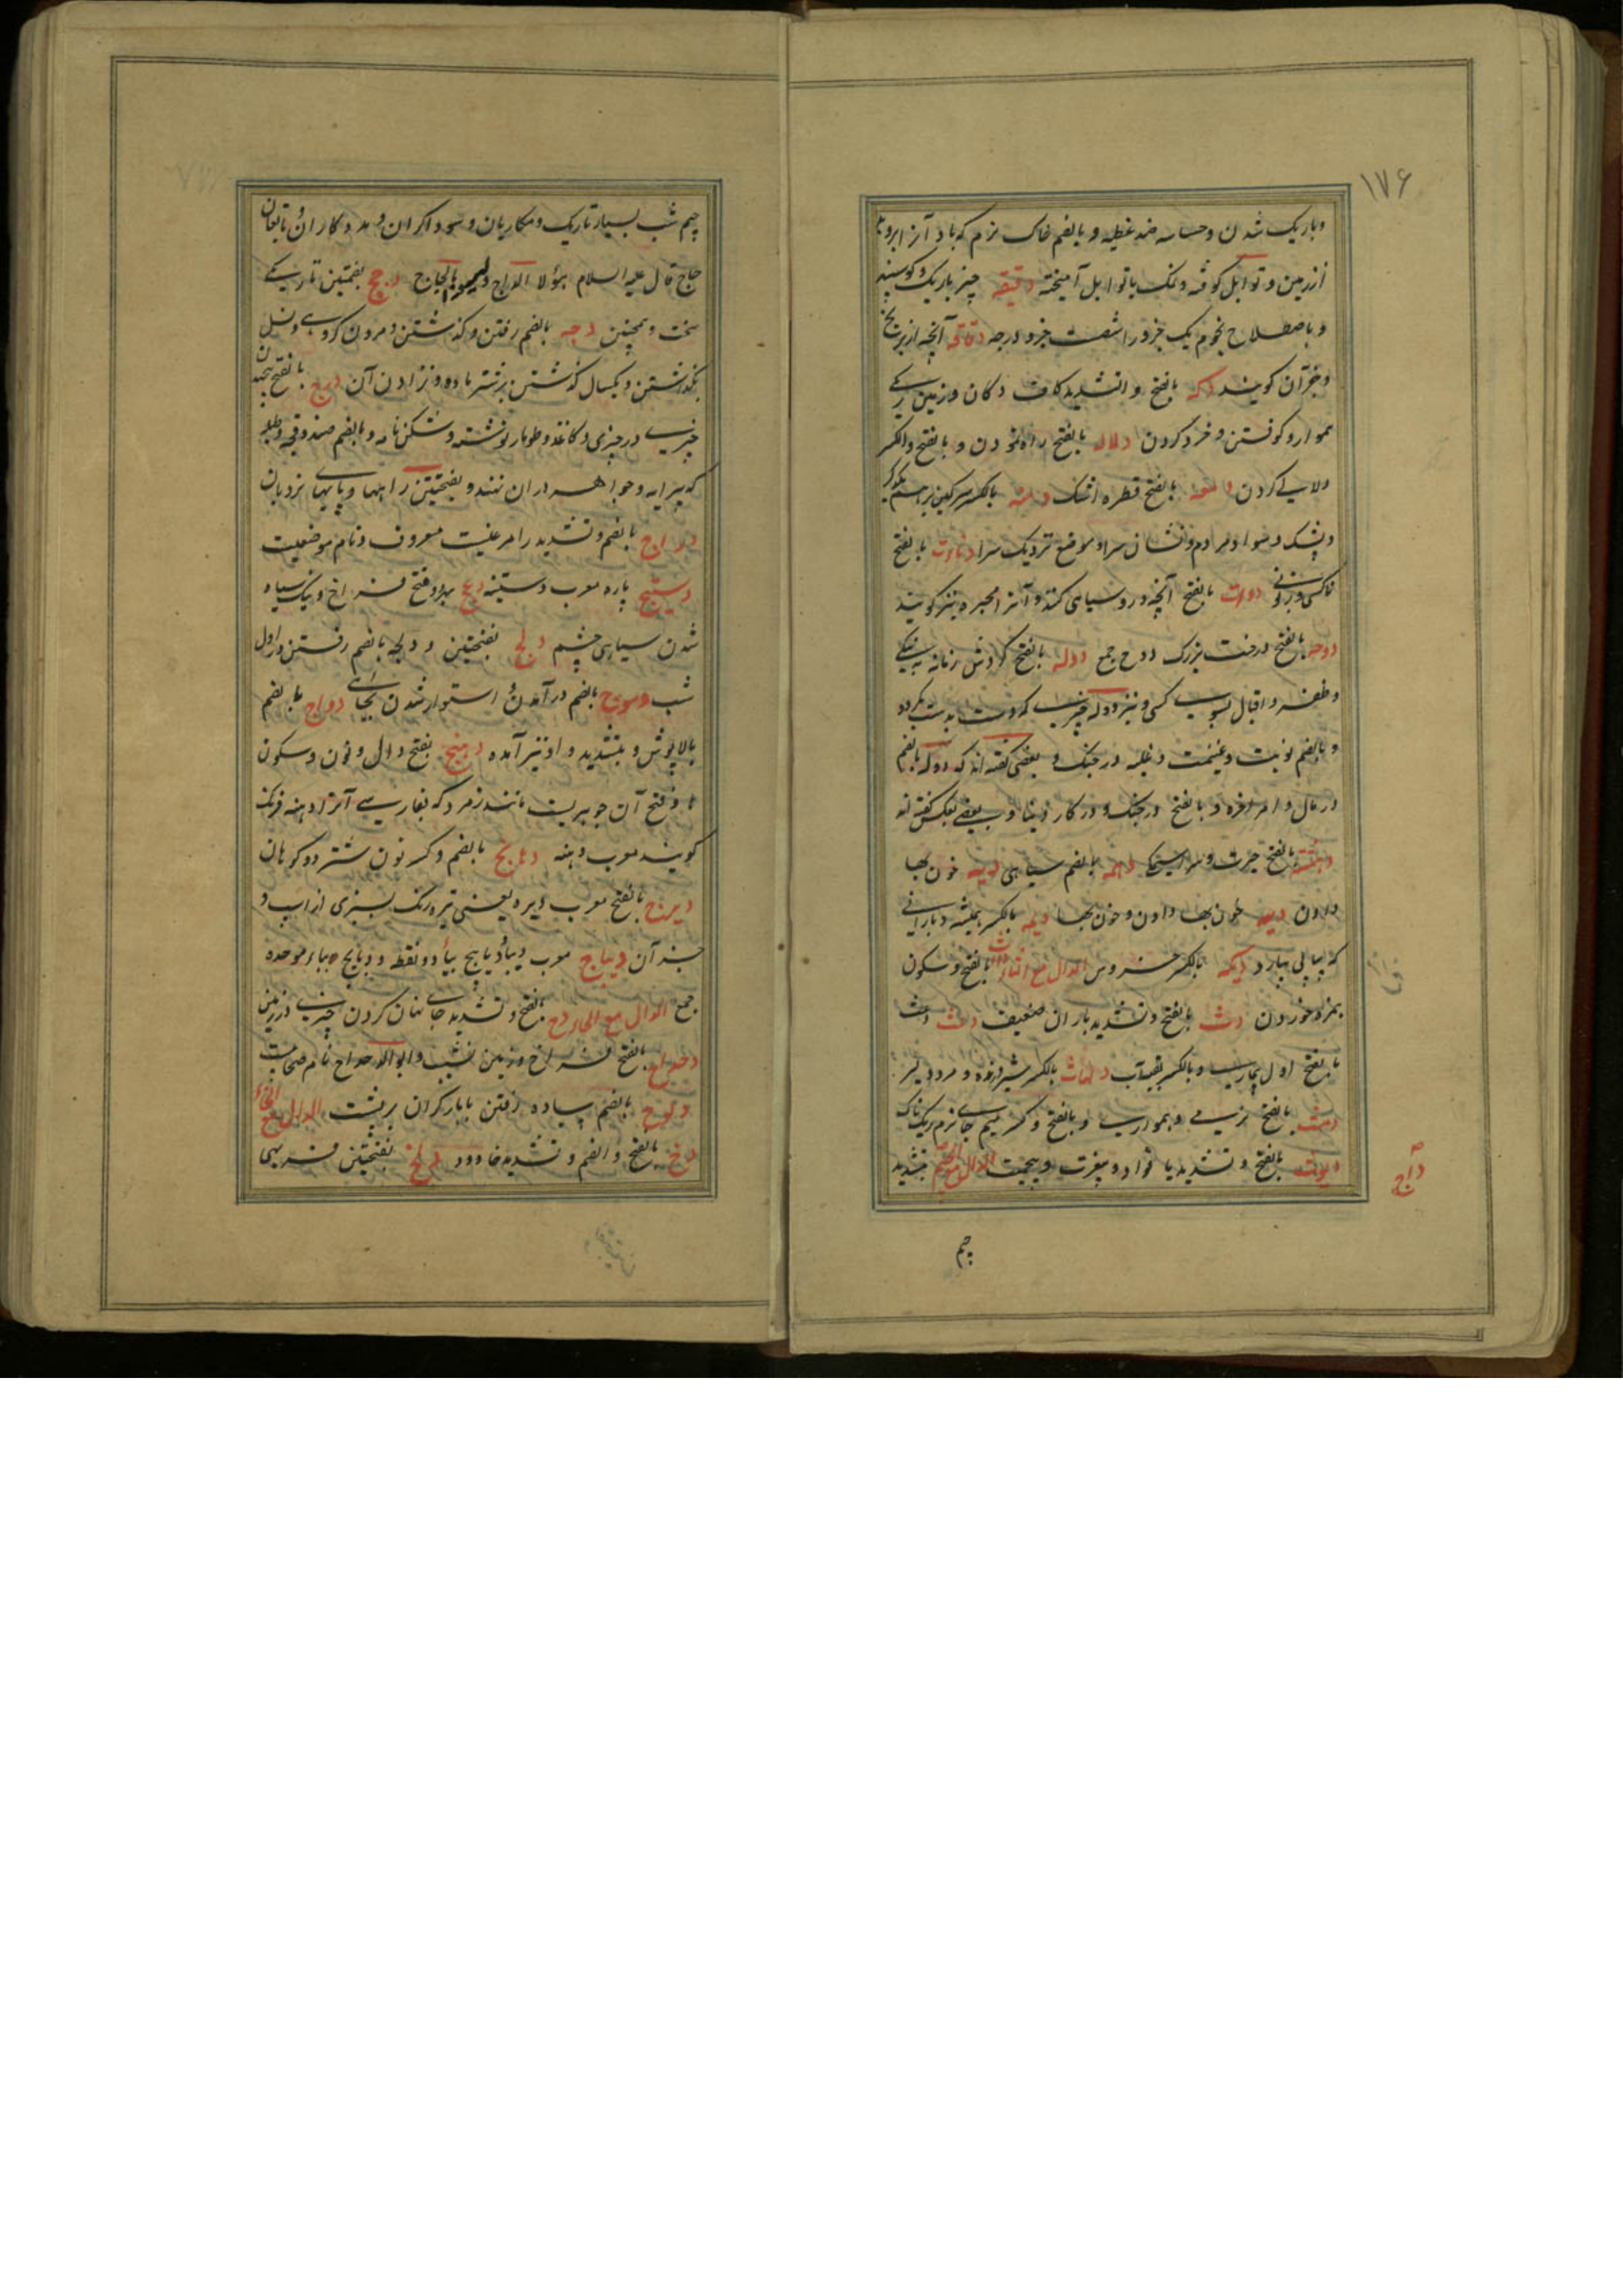 ۱۷۶
وباریک شدن وحساسه ضد غظیه و بالضم خاک نرم که باد آنرا بروبد
از زمین وتوابل کوفته ونمک باتوابل آمیخته دقیقه چیز باریک وکوسپند
وباصطلاح نجوم یک جزو از شصت جزو درجه دقاقه آنچه از برنج
وجز آن کویند دکه بالفتح والتشدید کاف دکان وزمین ریکی
هموار وکوفتن وخرد کردن دلاله بالفتح راه نمودن و بالفتح والکسر
دلالی کردن دمعه بالفتح قطره اشک دمنه بالکسر سرکین برهم
وپشک وسواد مردم ونشان سرا وموضع نزدیک سرا دناءت بالفتح
ناکسی وزبونی دوات بالفتح آنچه درو سیاهی کنند وآنرا محبره نیز کویند
دوحه بالفتح درخت بزرک دوح جمع دوله بالفتح کردش زمانه به نیکی
وظفر واقبال بسوی کسی ونیز دوله چیزی که دست بدست کردد
و بالضم نوبت وغنیمت وغلبه در جنک و بعضی کفته اند که دوله بالضم
در مال وامر آخره و بالفتح در جنک و در کار دنیا و بعضی بعکس کفته اند
دهشة بالفتح حیرت وسراسیمکی دهمه بالضم سیاهی دیه خون بها
دادن دیه خون بها دادن وخون بها دیمه بالکسر همیشه وبارانی
که پیاپی ببارد دیکه بالکسر خروس الدال مع الثاء بالفتح وسکون
بمزد خوردن دث بالفتح وتشدید باران ضعیف دعث
بالفتح اول بیماری وبالکسر بقیه آب دلهاث بالکسر شیر درنده و مرد دلیر
دمث بالفتح نرمی وهمواری و بالفتح وکسر میم جای نرم ریک ناک
دیوث بالفتح وتشدید یا قواد و بیغرت وبیحمیت الدال مع الجیم بتشدید
داج
جیم
جیم شب بسیار تاریک ومکاریان وسوداکران ومددکاران وتابعان
حاج قال علیه السلام هؤلاء الداج ولیسوا بالحاج دجج بضمتین تاریکی
سخت وهمچنین دجه بالضم رفتن وکذشتن ومردن کروهی ونسل
نکذاشتن ویکسال کذشتن بر شتر ماده ونزادن آن درج بالفتح پیچیدن
چیزی در چیزی وکاغذ وطومار نوشته وشکن نامه و بالضم صندوقچه وطبله
که پیرایه وجواهر دران نهند و بفتحتین راهها وپایهای نردبان
دراج بالضم وتشدید را مرغیست معروف ونام موضعیست
دستیج یاره معرب دستینه دعج بدو فتح فراخ ونیک سیاه
شدن سیاهی چشم دلج بفتحتین و دلجه بالضم رفتن در اول
شب دموج بالضم در آمدن واستوار شدن بجای دواج بالضم
بالاپوش و بتشدید واو نیز آمده دهنج بفتح دال ونون وسکون
ها وفتح آن جوهریست مانند زمرد که بفارسی آنرا دهنه فرنک
کویند معرب دهنه دهانج بالضم وکسر نون شتر دو کوهان
دیزج بالفتح معرب دیزه یعنی تیره رنک بسبزی از اسب و
جز آن دیباج معرب دیبا ودیابیج بیاء دو نقطه و دبابیج بباء موحده
جمع الدال مع الحاء دح بفتح وتشدید حا نهان کردن چیزی در زمین
دحداح بالفتح فراخ وزمین نشیب وابو الدحداح نام صحابیست
دلوح بالضم پیاده رفتن بابار کران بر پشت الدال مع الخاء
دخ بالفتح والضم وتشدید خا دود دلخ بفتحتین فربهی